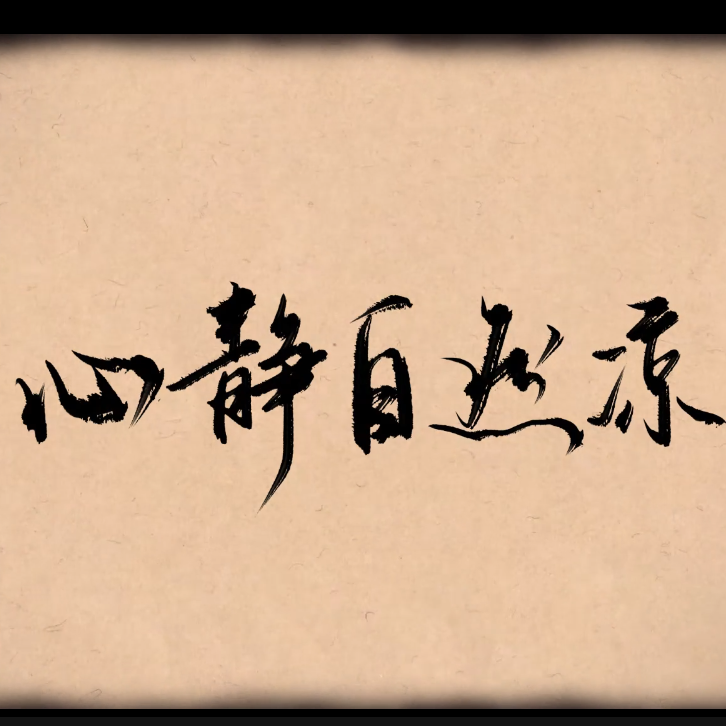 心静自然凉